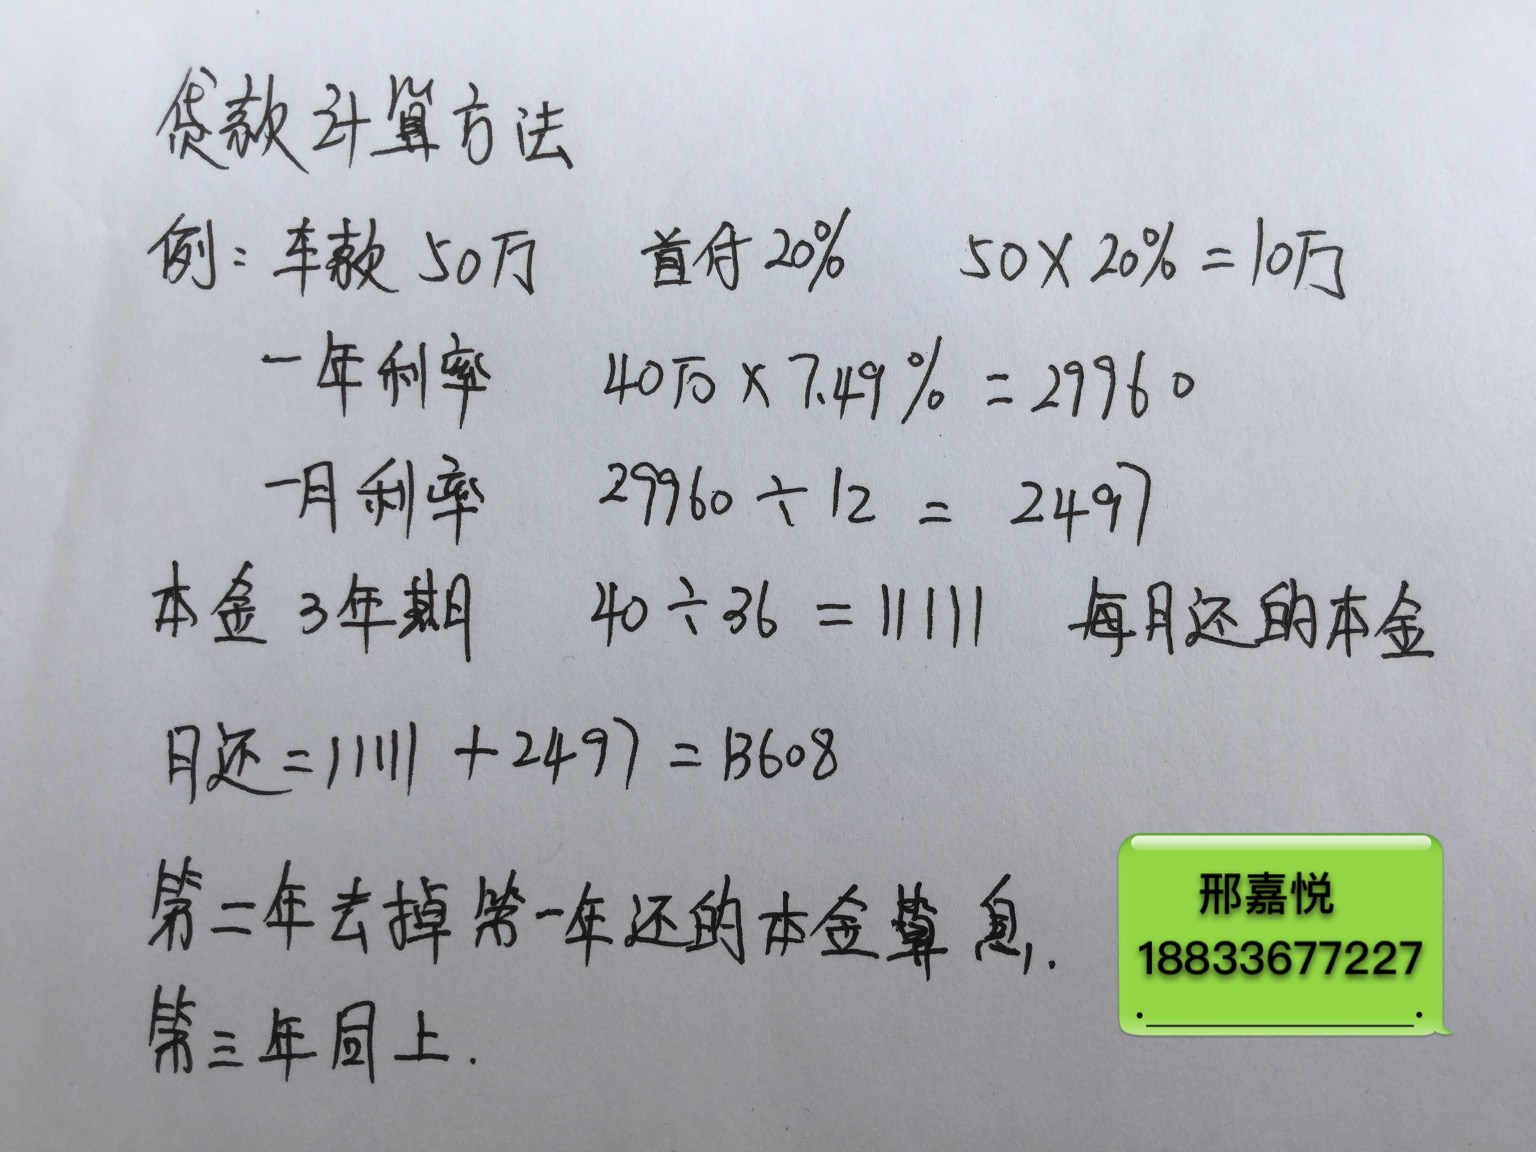 贷款计算方法
例：车款50万 首付20% 50×20%=10万
一年利率 40万×7.49%=29960
一月利率 29960÷12=2497
本金3年期 40÷36=11111 每月还的本金
月还=11111+2497=13608
第二年去掉第一年还的本金算息.
第三年同上.
邢嘉悦
18833677227